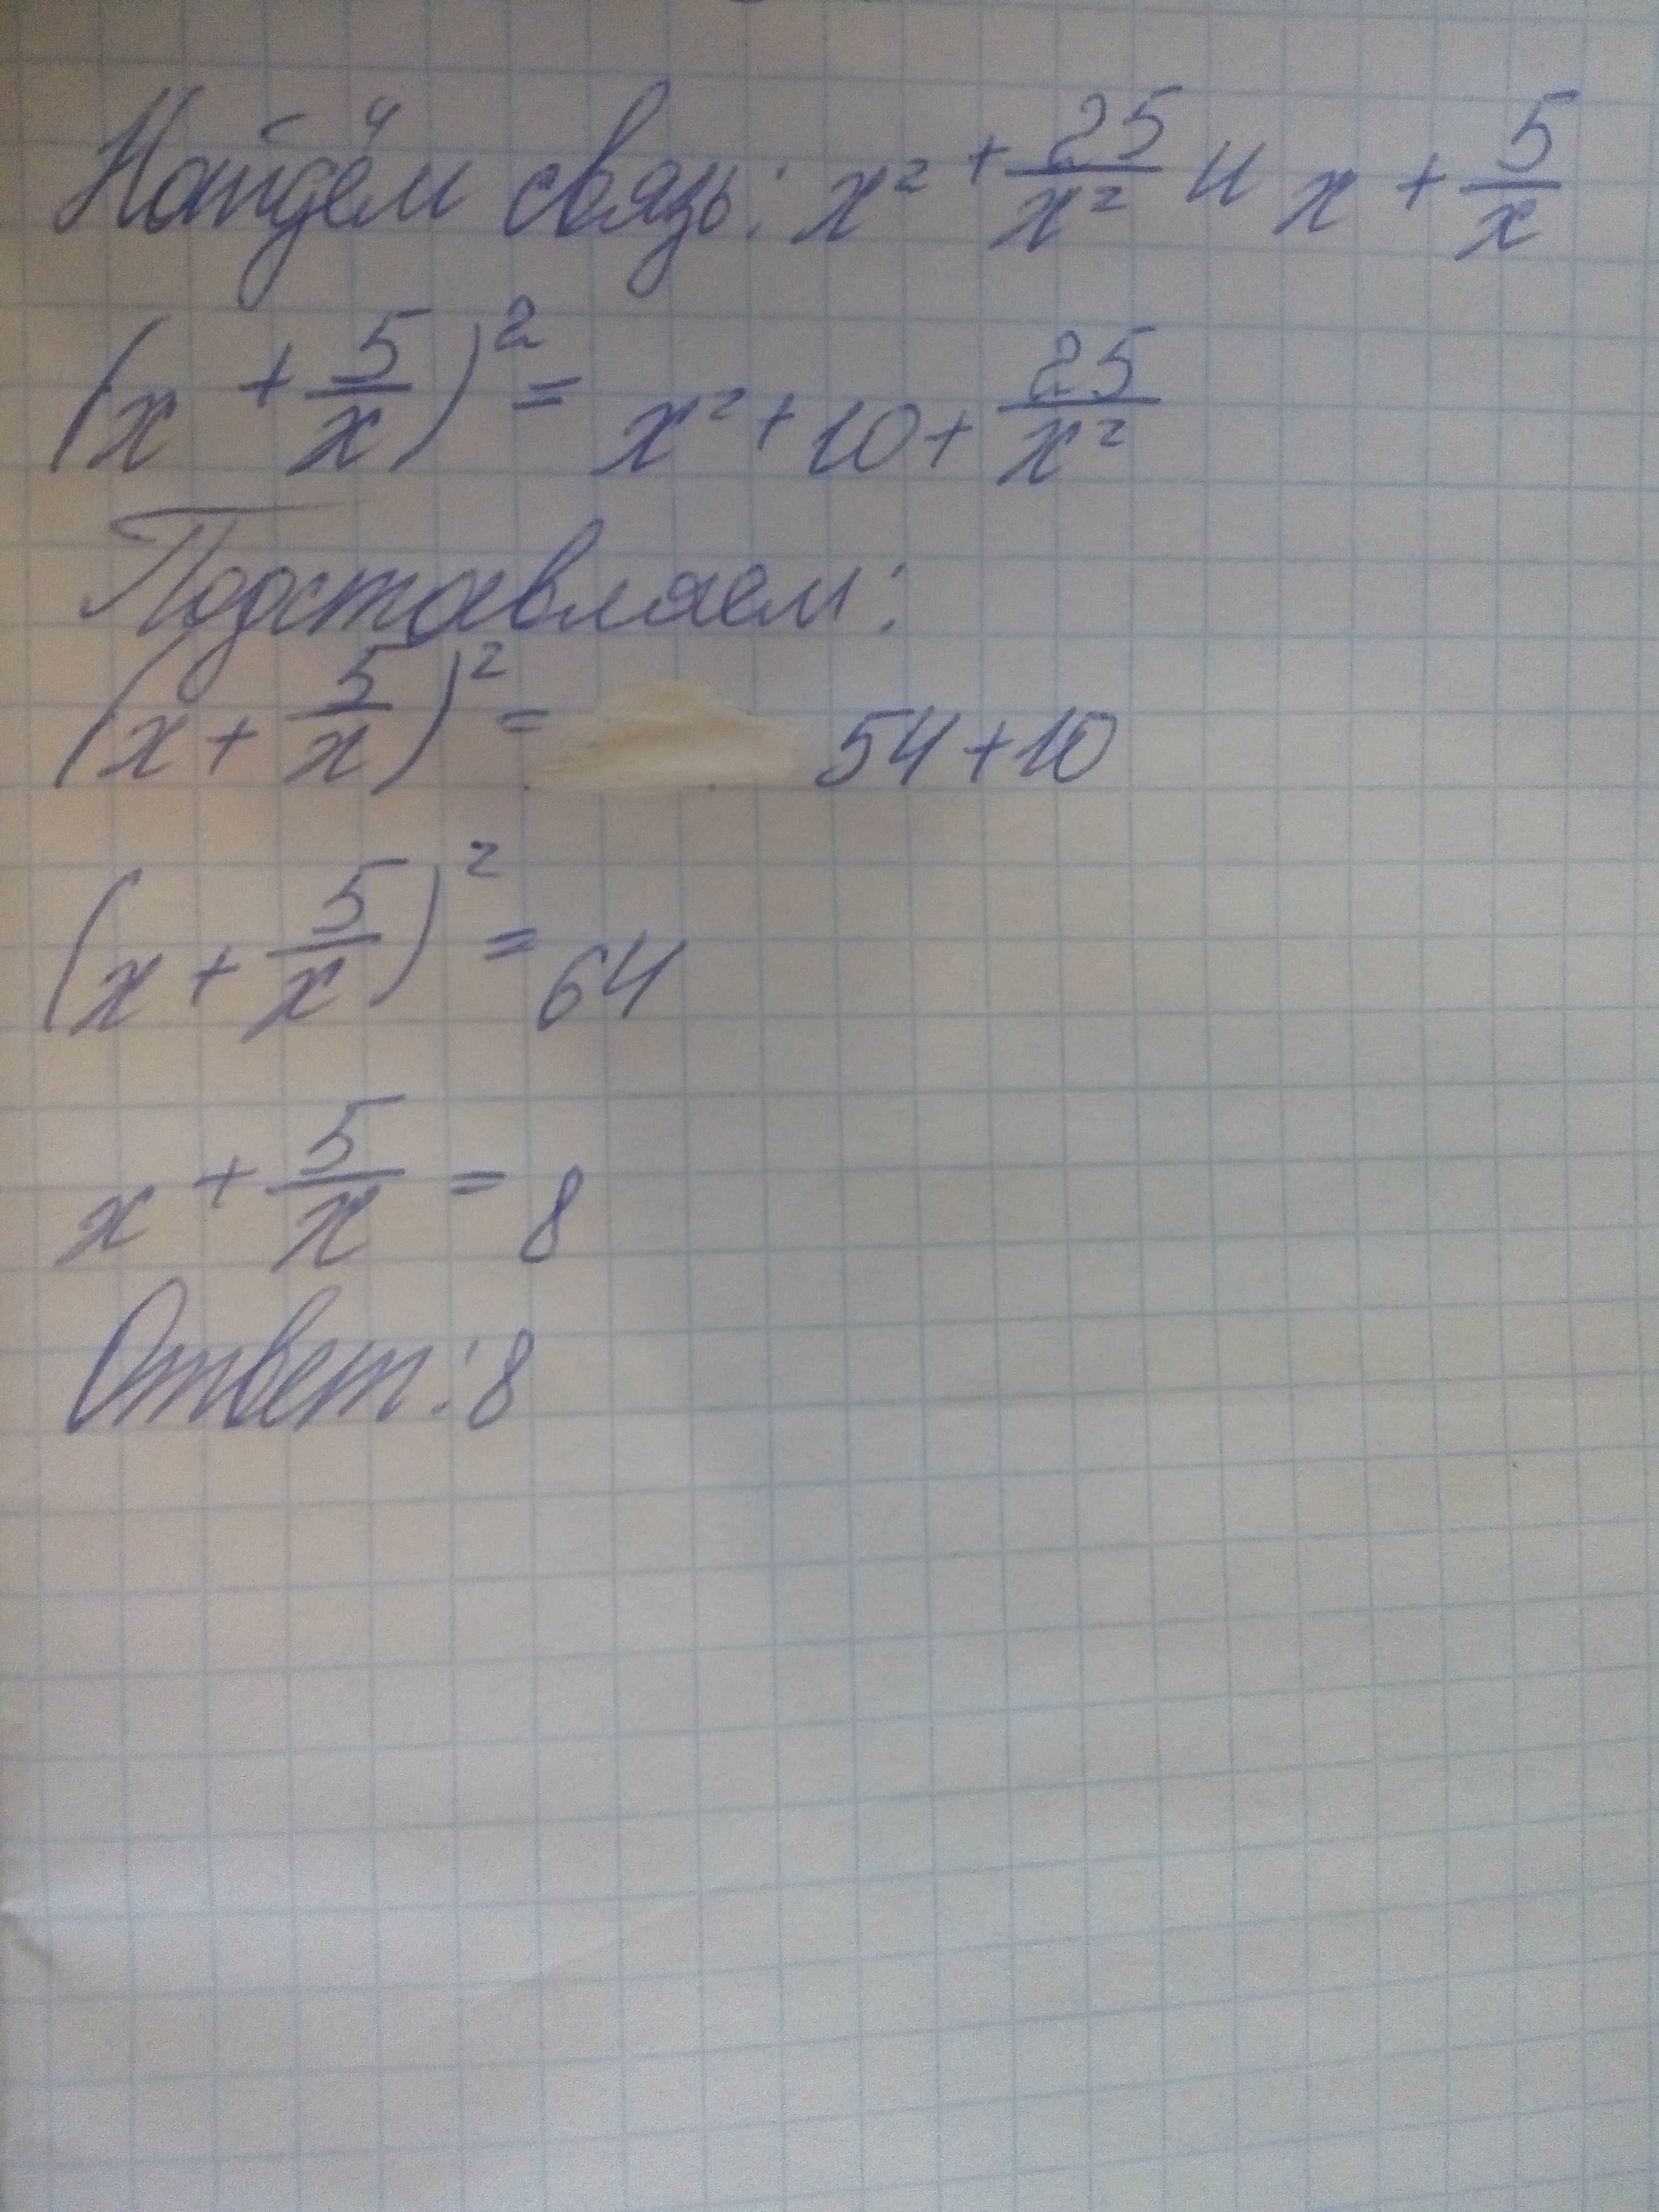 Найдём связь: x² + 25/x² и x + 5/x
(x + 5/x)² = x² + 10 + 25/x²
Подставляем:
(x + 5/x)² = 54 + 10
(x + 5/x)² = 64
x + 5/x = 8
Ответ: 8